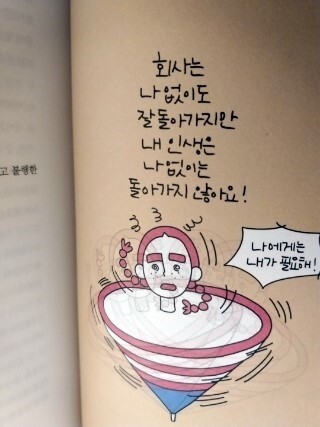 회사는
나 없이도
잘 돌아가지만
내 인생은
나 없이는
돌아가지 않아요!
나에게는
내가 필요해!
고 불행한